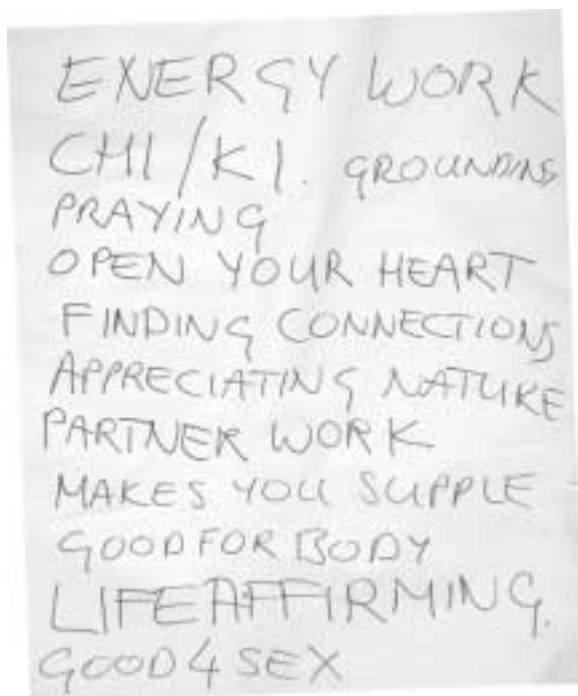 ENERGY WORK
CHI/KI. GROUNDING
PRAYING
OPEN YOUR HEART
FINDING CONNECTIONS
APPRECIATING NATURE
PARTNER WORK
MAKES YOU SUPPLE
GOOD FOR BODY
LIFEAFFIRMING.
GOOD 4 SEX